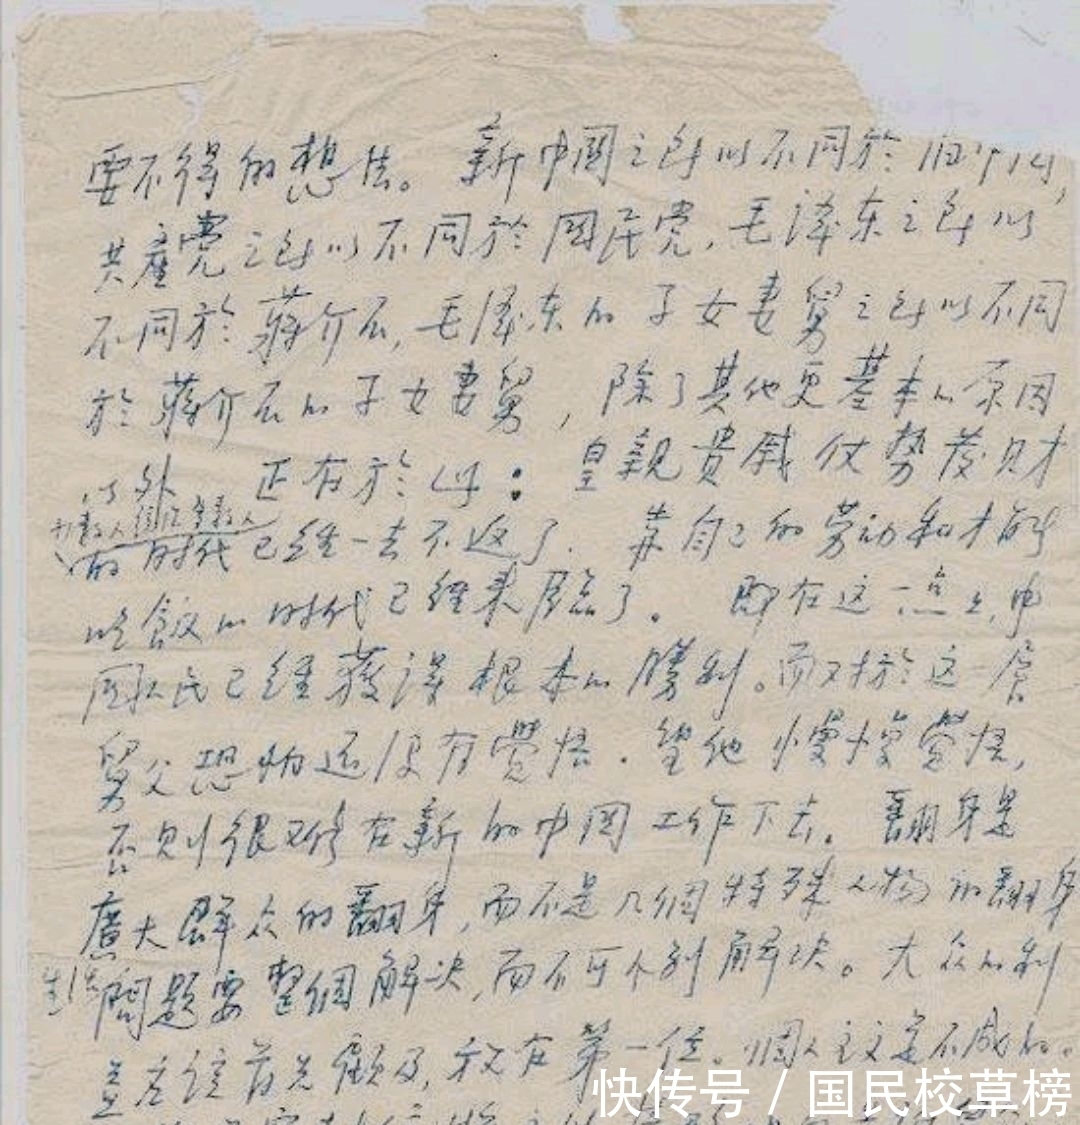 要不得的想法。新中国之所以不同於旧中国,
共產党之所以不同於国民党,毛泽东之所以
不同於蒋介石,毛泽东的子女妻舅之所以不同
於蒋介石的子女妻舅,除了其他更基本的原因
以外 正在於此:皇親貴戚仗势發财
少数人統治多数人
的时代已經一去不返了.靠自己的劳动和才能
吃飯的时代已經来臨了。即在这一点上,中
国人民已經獲得根本的勝利。而对於这一層
舅父恐怕还没有覺悟.望他慢慢覺悟,
否则很难在新的中国工作下去。翻身是
廣大群众的翻身,而不是几個特殊人物的翻身
生活問題要整個解决,而不可个别解决。大众的利
益应该首先顧及,放在第一位。個人主义是不成的。
快传号/国民校草榜